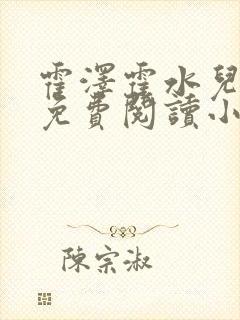 霍澤霍水兒
免費閱讀小
陳宗淑